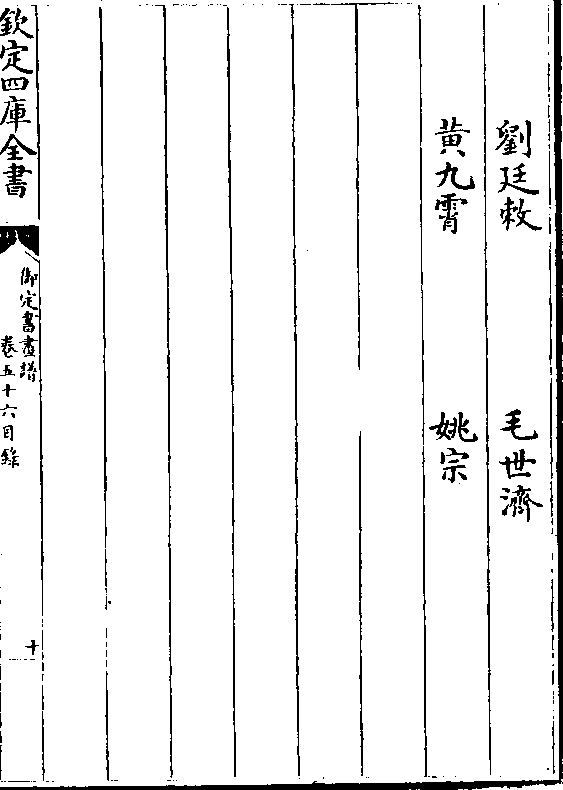 劉廷敕　毛世濟
黄九霄　姚宗
欽定四庫全書
御定書畫譜
卷五十六目錄
十